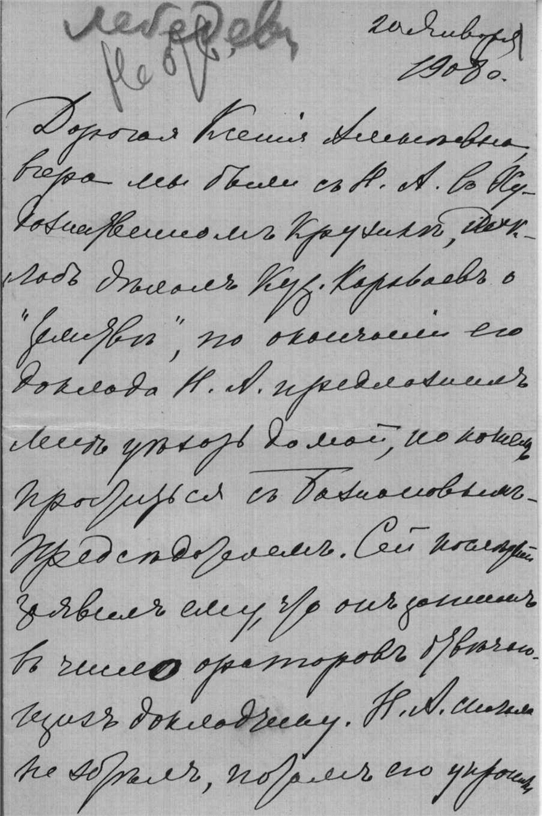 Лебедев,
20 Января
1908 г.
Дорогая Ксения Алексеевна,
вчера мы были съ Н. А. въ Ху-
дожественномъ Кружкѣ, Док-
ладъ дѣлалъ Куз. Караваевъ о
"Земствѣ", по окончании его
доклада Н. А. предложилъ
мнѣ уѣхать домой, но пошелъ
проститься съ Баженовымъ-
предсѣдателемъ. Сей последний
заявилъ ему, что онъ записанъ
въ число ораторовъ отвѣчаю-
щихъ докладчику. Н. А. сначала
не хотѣлъ, потомъ его упросили